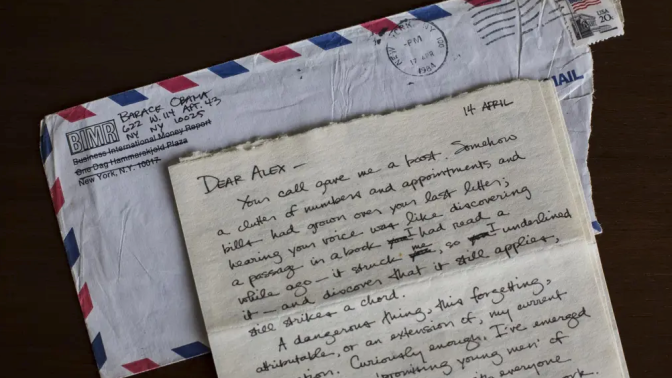 NEW YORK, NY 100
PM
17 APR
1984
USA
20c
MAIL
BARACK OBAMA
622 W. 114 APT. 43
NY NY 10025
BIMR
Business International Money Report
One Dag Hammarskjold Plaza
New York, N.Y. 10017
14 APRIL
DEAR ALEX –
Your call gave me a boost. Somehow
a clutter of numbers and appointments and
bills had grown over your last letter;
hearing your voice was like discovering
a passage in a book I had read a
while ago – it struck me, so I underlined
it – and discover that it still applies,
still strikes a chord.
A dangerous thing, this forgetting,
attributable, or an extension of, my current
Curiously enough, I've emerged
"promising young men" of
everyone
work.